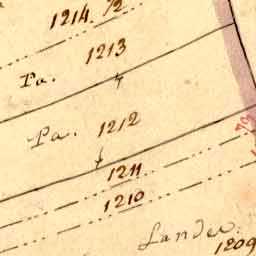 1214. 72
Pa. 1213
Pa. 1212
1211
1210
1209